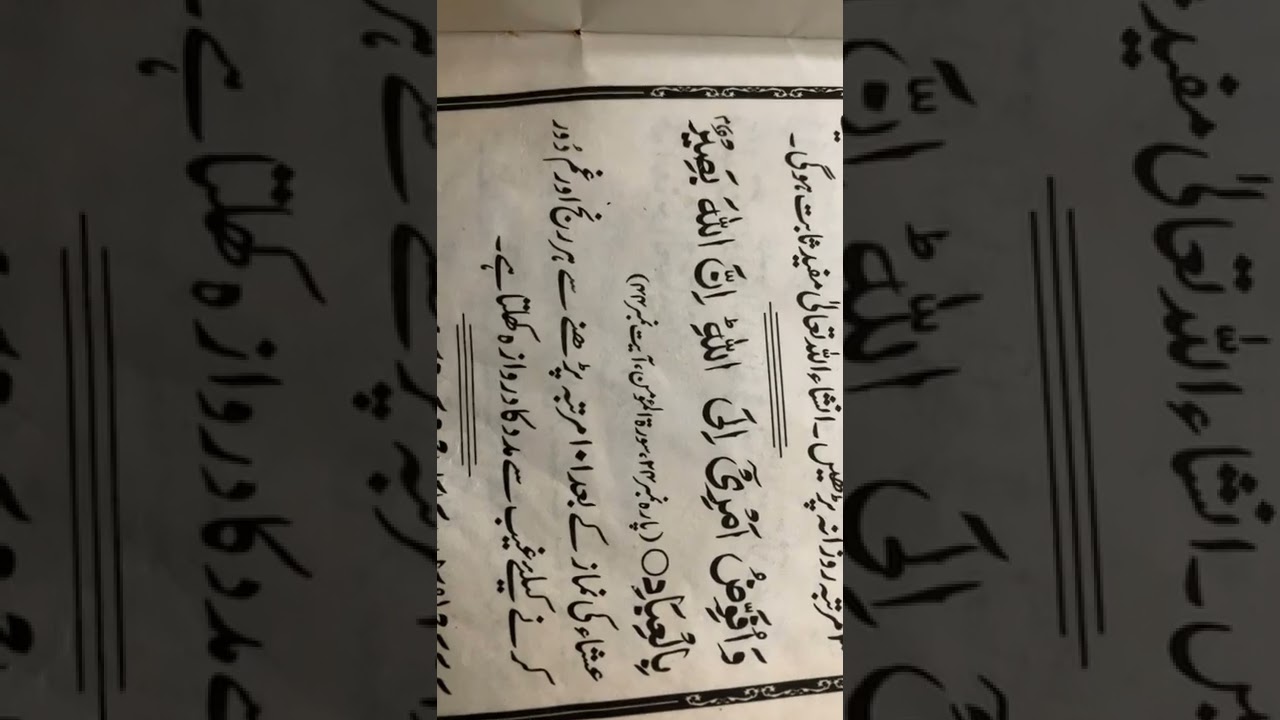 مرتبہ روزانہ پڑھیں۔ انشاء اللہ تعالیٰ مفید ثابت ہوگی۔
وَاُفَوِّضُ اَمْرِیْۤ اِلَی اللّٰهِ ؕ اِنَّ اللّٰهَ بَصِیْرٌۢ
بِالْعِبَادِ ○ (پارہ نمبر ۲۴، سورۃ المؤمن، آیت نمبر ۴۴)
عشاء کی نماز کے بعد ۱۰۱ مرتبہ پڑھنے سے ہر رنج اور غم دُور
کرنے کیلئے غیب سے مدد کا دروازہ کھلتا ہے۔